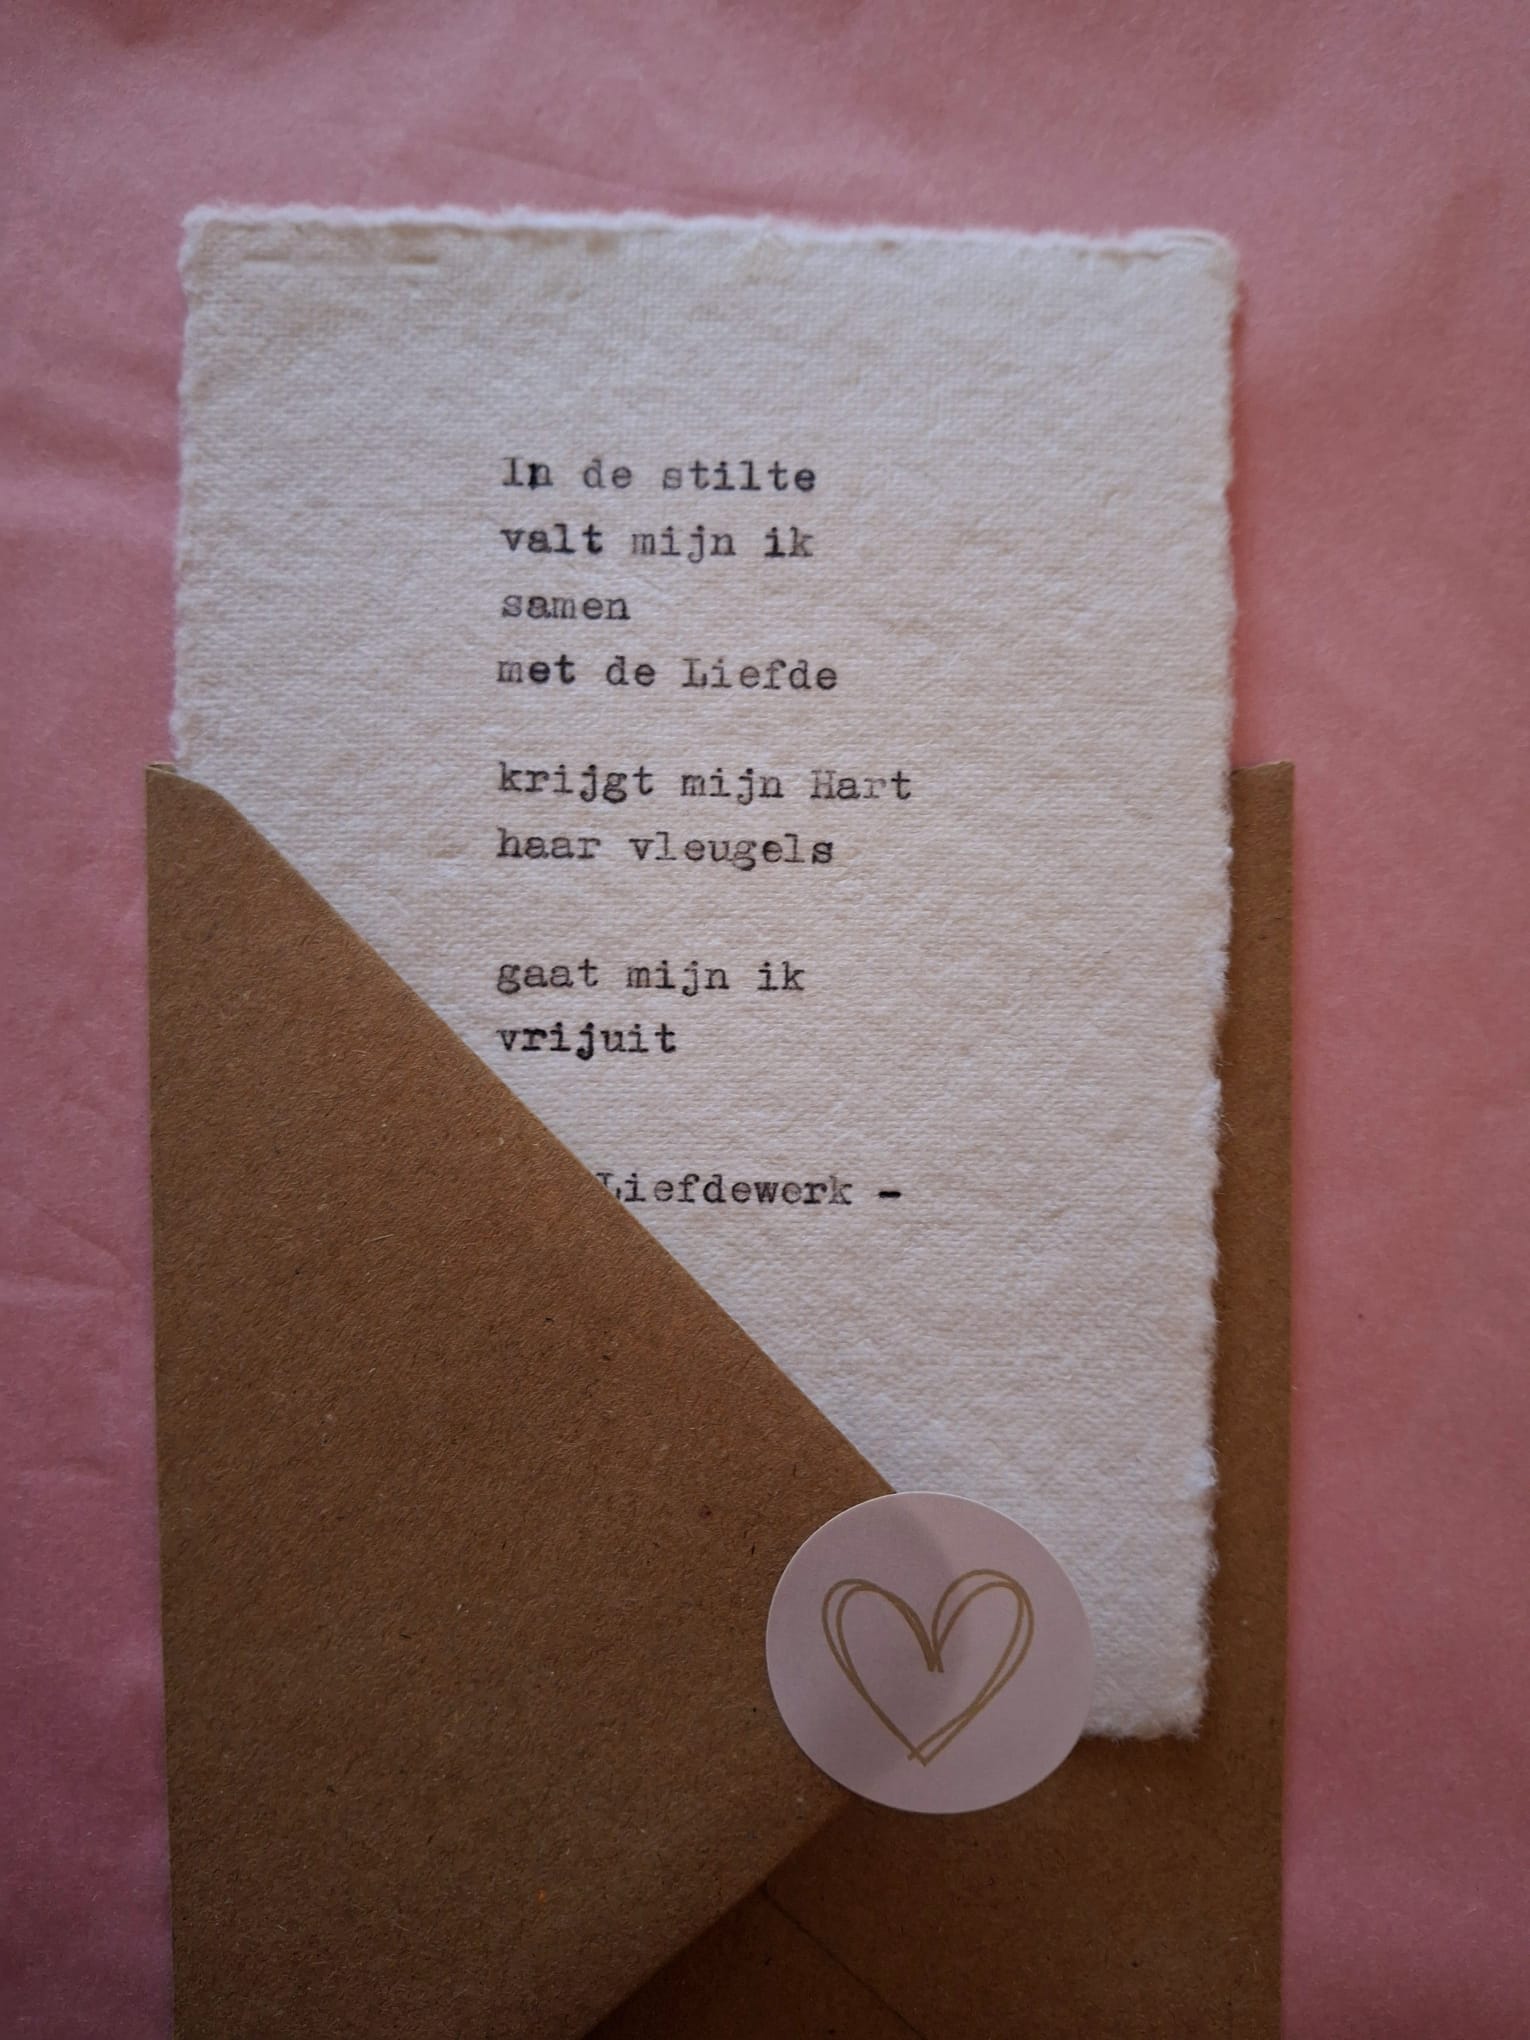 In de stilte
valt mijn ik
samen
met de Liefde
krijgt mijn Hart
haar vleugels
gaat mijn ik
vrijuit
Liefdewerk -